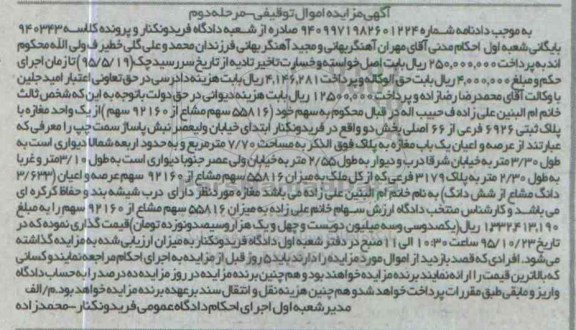 آگهی مزایده اموال توقیفی - مرحله دوم
به موجب دادنامه شماره ۹۴۰۹۹۷۱۹۸۲۶۰۱۲۲۴ صادره از شعبه دادگاه فریدونکنار و پرونده کلاسه ۹۴۰۳۴۳
بایگانی شعبه اول احکام مدنی آقای مهران آهنگربهانی و مجید آهنگربهانی فرزندان محمد و علی گلی خطیر ف ولی الله محکوم
اند به پرداخت ۲۵۰,۰۰۰,۰۰۰ ریال بابت اصل خواسته و خسارت تاخیر تادیه از تاریخ سررسید چک (۹۵/۵/۱۹) تا زمان اجرای
حکم و مبلغ ۴,۰۰۰,۰۰۰ ریال بابت حق الوکاله و پرداخت ۴,۱۴۶,۲۸۱ ریال بابت هزینه دادرسی در حق تعاونی اعتبار امید جلین
با وکالت آقای محمدرضا رضازاده و پرداخت ۱۲۵۰۰,۰۰۰ ریال بابت هزینه دیوانی در حق دولت باتوجه به این که شخص ثالث
خانم ام البنین علی زاده ف حبیب اله در قبال محکوم به سهم خود (۵۵۸۱۶ سهم مشاع از ۹۲۱۶۰ سهم) از یک واحد مغازه با
پلاک ثبتی ۶۹۲۶ فرعی از ۶۶ اصلی بخش دو واقع در فریدونکنار ابتدای خیابان ولیعصر نبش پاساژ سمت چپ را معرفی که
عبارتند از عرصه و اعیان یک باب مغازه به پلاک فوق الذکر به مساحت ۷/۷۰ مترمربع و به حدود اربعه شمالا دیواری است به
طول ۳/۳۰ متر به خیابان شرقا درب و دیوار به طول ۲/۵۵ متر به خیابان ولی عصر جنوبا دیواری است به طول ۳/۱۰ متر و غربا
به طول ۲/۳۰ متر به پلاک ۳۱۷۹ فرعی که از کل ملک به میزان ۵۵۸۱۶ سهم مشاع از ۹۲۱۶۰ سهم عرصه و اعیان (۳/۶۳۳
دانگ مشاع از شش دانگ) به نام خانم ام البنین علی زاده می باشد مغازه موردنظر دارای درب شیشه بند و حفاظ کرکره ای
می باشد و کارشناس منتخب دادگاه ارزش سهام خانم علی زاده به میزان ۵۵۸۱۶ سهم مشاع از ۹۲۱۶۰ سهم را به مبلغ
(یکصدو سی و سه میلیون دویست و چهل و یک هزار و سیصدو نوزده تومان) قیمت گذاری نموده که در
تاریخ ۹۵/۱۰/۲۳ ساعت ۱۰:۳۰ الی ۱۱ صبح در دفتر شعبه اول دادگاه فریدونکنار به میزان ارزیابی شده به مزایده گذاشته
می شود. افرادی که قصد بازدید از اموال مورد مزایده را دارند باید ۵ روز قبل از مزایده به اجرای احکام مراجعه نمایند و کسانی
که بالاترین قیمت را ارائه نمایند برنده مزایده خواهند بود و هم چنین برنده مزایده در روز مزایده ده درصد را به حساب دادگاه
واریز و مابقی طبق مقررات پرداخت خواهد شد و هم چنین هزینه نقل و انتقال سند بر عهده برنده مزایده خواهد بود. م/الف
مدیر شعبه اول اجرای احکام دادگاه عمومی فریدونکنار - محمدزاده